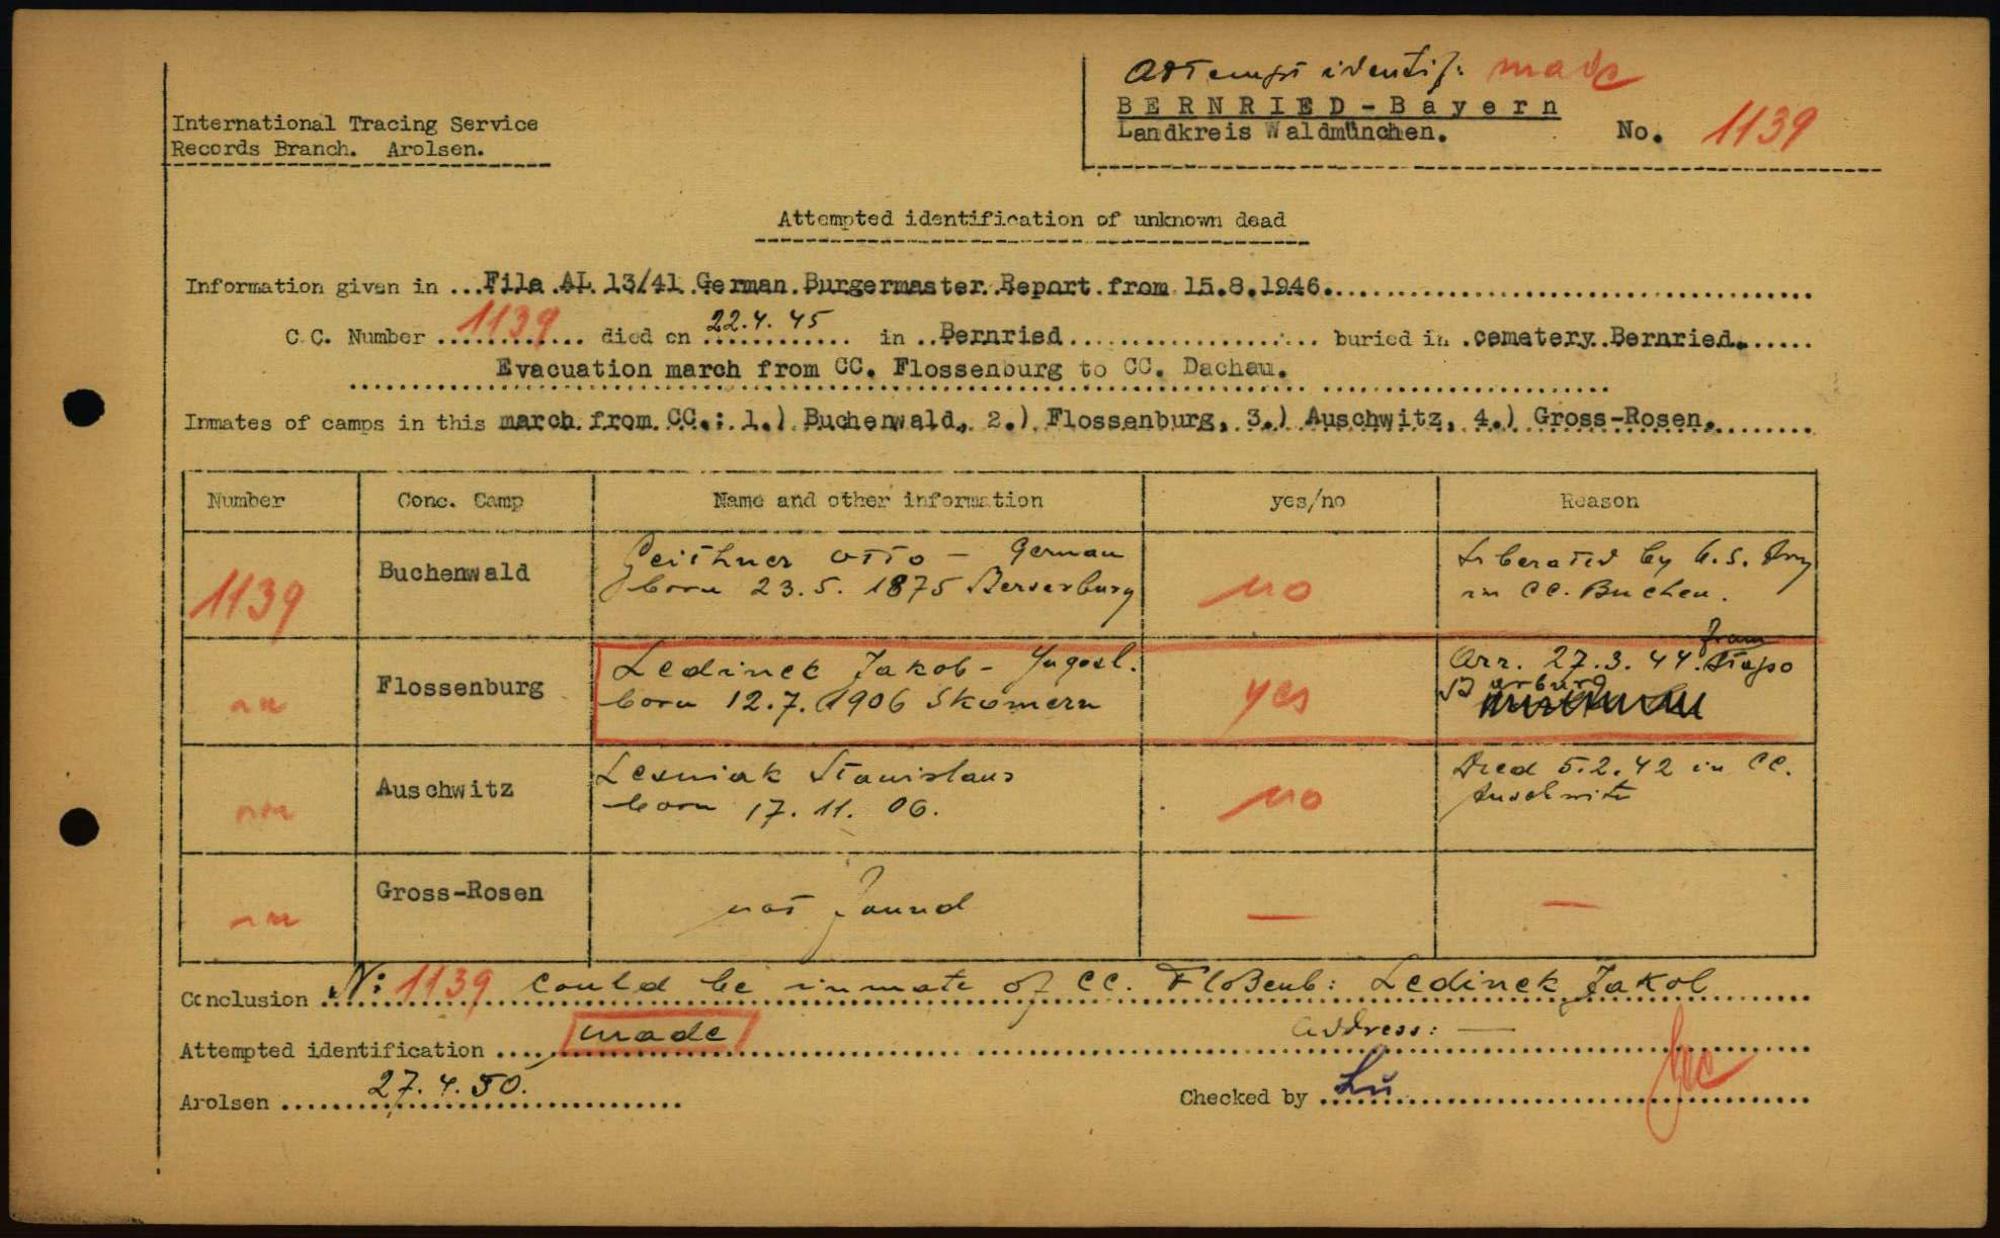 Attempt identif: made
BERNRIED-Bayern
Landkreis Waldmünchen. No. 1139
International Tracing Service
Records Branch. Arolsen.
Attempted identification of unknown dead
Information given in ...File AL 13/41 German Burgermaster Report from 15.8.1946.
C.C. Number 1139 died on 22.4.45 in Bernried buried in cemetery Bernried.
Evacuation march from CC. Flossenburg to CC. Dachau.
Inmates of camps in this march from CC.: 1.) Buchenwald, 2.) Flossenburg, 3.) Auschwitz, 4.) Gross-Rosen.
Number Conc. Camp Name and other information yes/no Reason
1139 Buchenwald Geithner Otto - German no Liberated by U.S. Army
born 23.5. 1875 in CC. Buchen.
Flossenburg Ledinek Jakob - Yugosl. yes Arr. 27.3.44. from Stapo
born 12.7.1906 Skomern
Auschwitz Lesniak Stanislaus no Died 5.2.42 in CC.
born 17.11.06. Auschwitz
Gross-Rosen not found — —
Conclusion N: 1139 could be inmate of CC. Floßenb: Ledinek Jakob
Attempted identification made Address: —
Arolsen 27.4.50. Checked by Lü